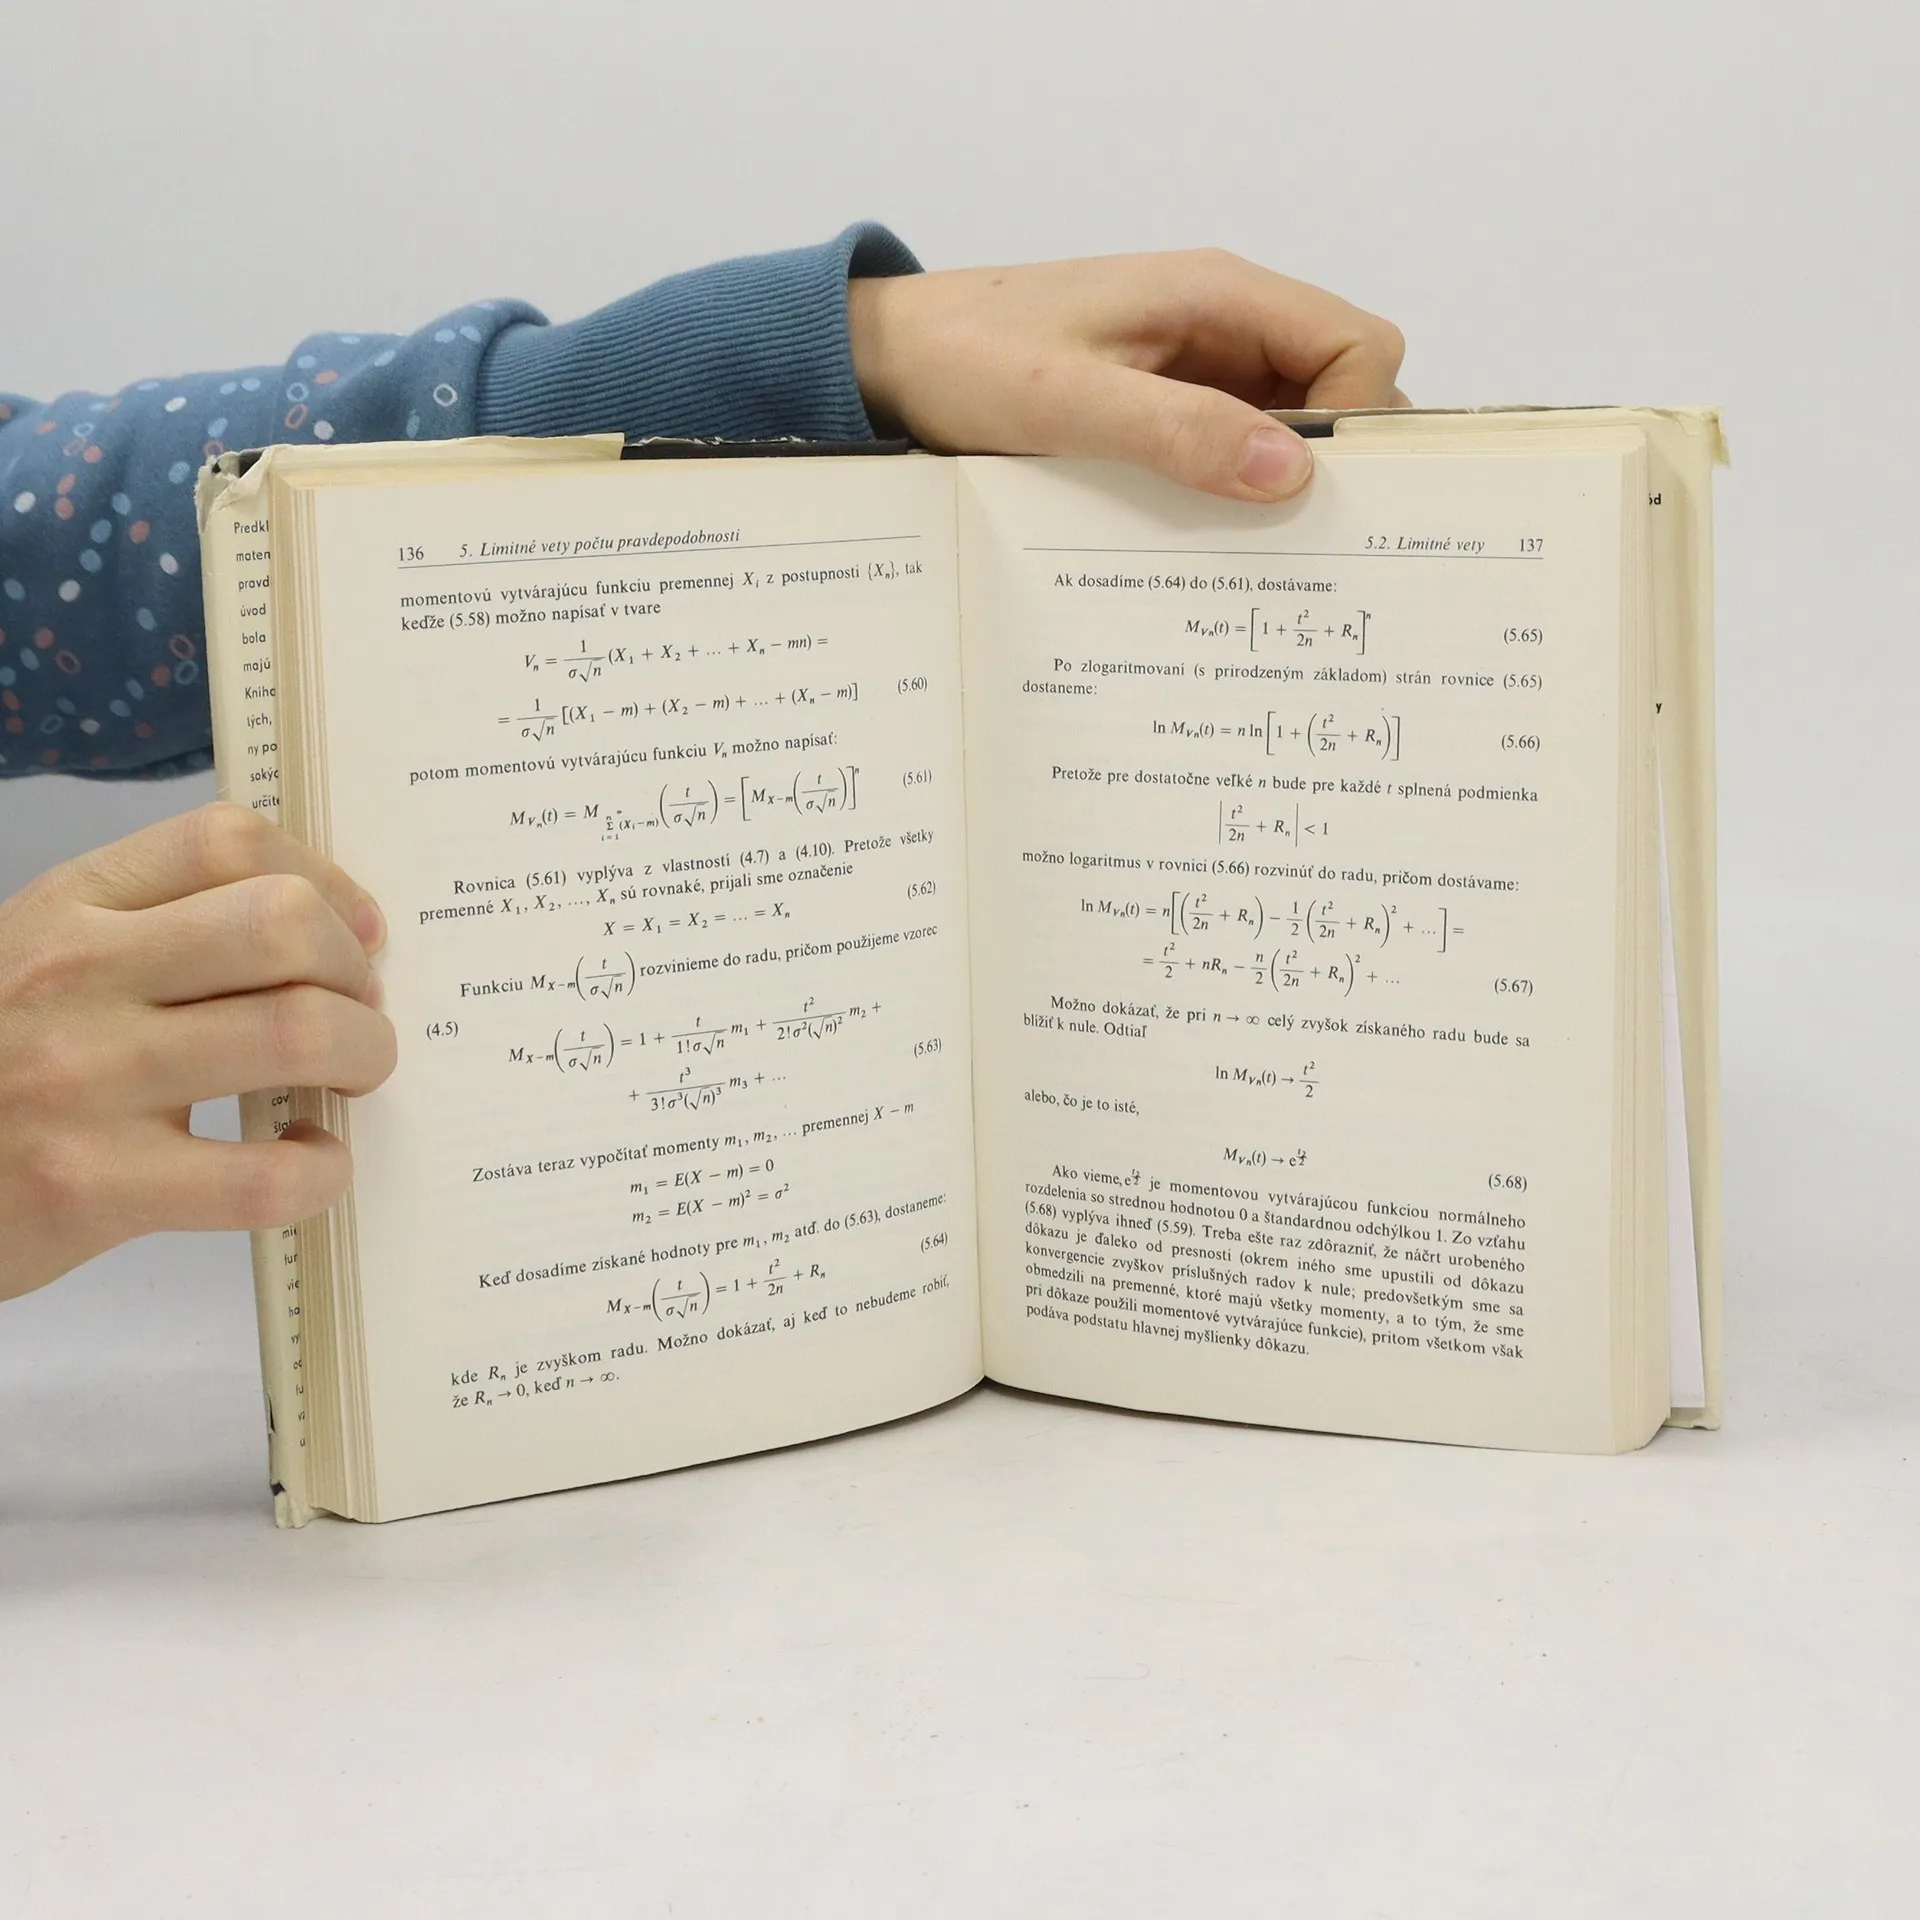 Predkl
matem
pravd
úvod
bola
majú
Kniha
lých,
ny po
sokýc
určite
cov
štat
mie
fun
vie
ha
vy
136 5. Limitné vety počtu pravdepodobnosti
momentovú vytvárajúcu funkciu premennej X_i z postupnosti {X_n}, tak
keďže (5.58) možno napísať v tvare
V_n = 1/(σ√n) (X_1 + X_2 + ... + X_n − mn) =
= 1/(σ√n) [(X_1 − m) + (X_2 − m) + ... + (X_n − m)] (5.60)
potom momentovú vytvárajúcu funkciu V_n možno napísať:
M_{V_n}(t) = M_{Σ_{i=1}^{n} (X_i−m)}(t/(σ√n)) = [M_{X−m}(t/(σ√n))]^n (5.61)
Rovnica (5.61) vyplýva z vlastností (4.7) a (4.10). Pretože všetky
premenné X_1, X_2, ..., X_n sú rovnaké, prijali sme označenie
X = X_1 = X_2 = ... = X_n (5.62)
Funkciu M_{X−m}(t/(σ√n)) rozvinieme do radu, pričom použijeme vzorec
(4.5)
M_{X−m}(t/(σ√n)) = 1 + t/(1!σ√n) m_1 + t²/(2!σ²(√n)²) m_2 +
+ t³/(3!σ³(√n)³) m_3 + ... (5.63)
Zostáva teraz vypočítať momenty m_1, m_2, ... premennej X − m
m_1 = E(X − m) = 0
m_2 = E(X − m)² = σ²
Keď dosadíme získané hodnoty pre m_1, m_2 atď. do (5.63), dostaneme:
M_{X−m}(t/(σ√n)) = 1 + t²/2n + R_n (5.64)
kde R_n je zvyškom radu. Možno dokázať, aj keď to nebudeme robiť,
že R_n → 0, keď n → ∞.
5.2. Limitné vety 137
Ak dosadíme (5.64) do (5.61), dostávame:
M_{V_n}(t) = [1 + t²/2n + R_n]^n (5.65)
Po zlogaritmovaní (s prirodzeným základom) strán rovnice (5.65)
dostaneme:
ln M_{V_n}(t) = n ln [1 + (t²/2n + R_n)] (5.66)
Pretože pre dostatočne veľké n bude pre každé t splnená podmienka
|t²/2n + R_n| < 1
možno logaritmus v rovnici (5.66) rozvinúť do radu, pričom dostávame:
ln M_{V_n}(t) = n[(t²/2n + R_n) − 1/2 (t²/2n + R_n)² + ...] =
= t²/2 + nR_n − n/2 (t²/2n + R_n)² + ... (5.67)
Možno dokázať, že pri n → ∞ celý zvyšok získaného radu bude sa
blížiť k nule. Odtiaľ
ln M_{V_n}(t) → t²/2
alebo, čo je to isté,
M_{V_n}(t) → e^{t²/2} (5.68)
Ako vieme, e^{t²/2} je momentovou vytvárajúcou funkciou normálneho
rozdelenia so strednou hodnotou 0 a štandardnou odchýlkou 1. Zo vzťahu
(5.68) vyplýva ihneď (5.59). Treba ešte raz zdôrazniť, že náčrt urobeného
dôkazu je ďaleko od presnosti (okrem iného sme upustili od dôkazu
konvergencie zvyškov príslušných radov k nule; predovšetkým sme sa
obmedzili na premenné, ktoré majú všetky momenty, a to tým, že sme
pri dôkaze použili momentové vytvárajúce funkcie), pritom všetkom však
podáva podstatu hlavnej myšlienky dôkazu.
y